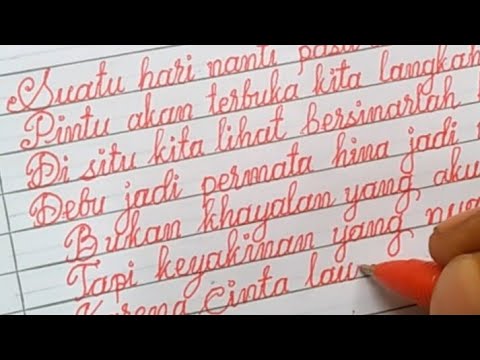 Suatu hari nanti pasti
Pintu akan terbuka kita langkah
Di situ kita lihat bersinarlah
Debu jadi permata hina jadi
Bukan khayalan yang aku
Tapi keyakinan yang nya
Karena cinta lau